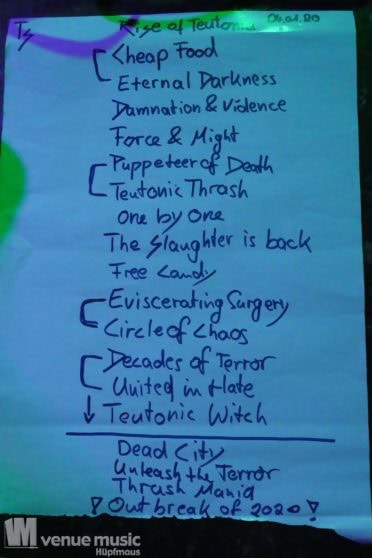 TS Rise of Teutonic 04.01.20
Cheap Food
Eternal Darkness
Damnation & Violence
Force & Might
Puppeteer of Death
Teutonic Thrash
one by one
The Slaughter is back
Free Candy
Eviscerating Surgery
Circle of Chaos
Decades of Terror
United in Hate
Teutonic Witch
Dead City
Unleash the Terror
Thrash Mania
! Outbreak of 2020 !
venue music
Hüpfmaus